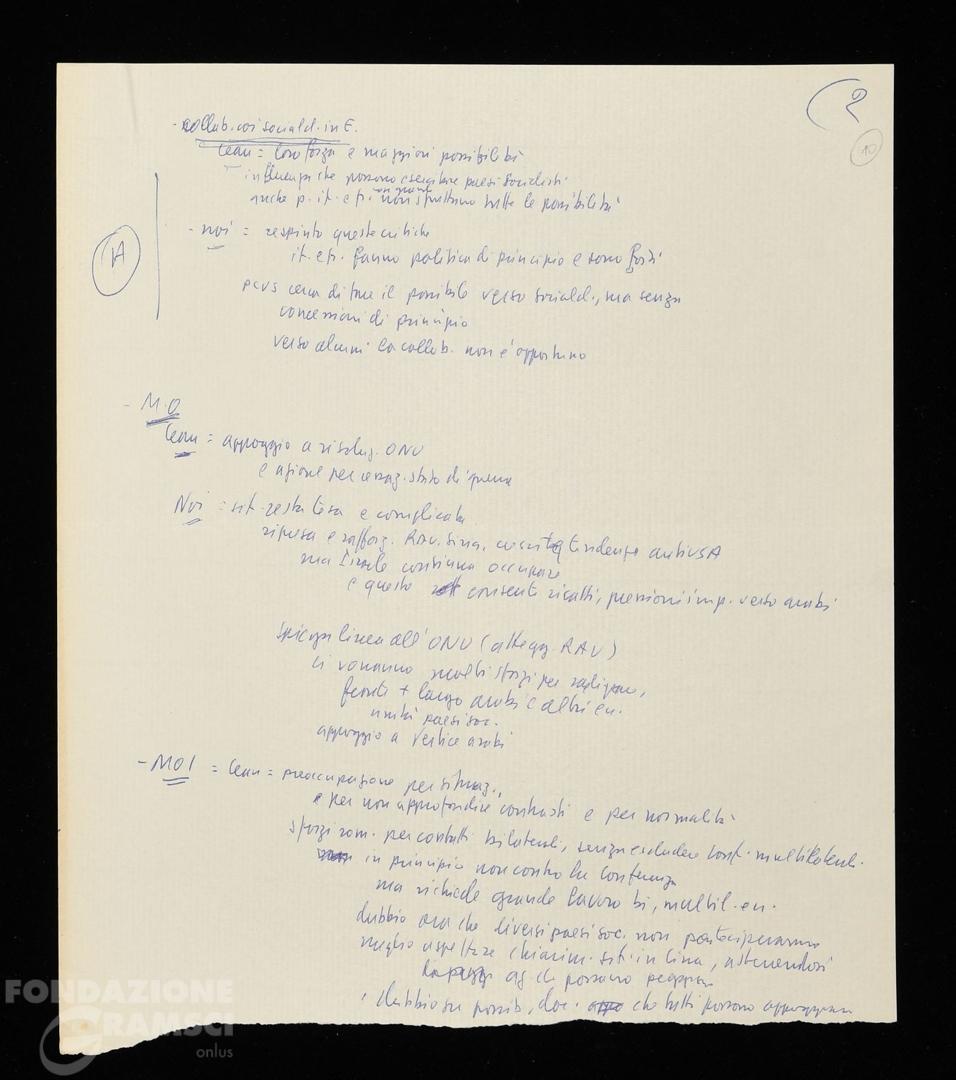 2
10
- collab. coi sociald. in E.
Ceau = loro forza e maggiori possibilità
influenza che possono esercitare paesi socialisti
anche p. it. e fr. non sfruttano tutte le possibilità
A
- noi = respinto queste critiche
it. e fr. fanno politica di principio e sono forti
PCUS cerca di fare il possibile verso sociald., ma senza
concessioni di principio
verso alcuni la collab. non è opportuna
- M.O
Ceau = appoggio a risoluz. ONU
e azione per cessaz. stato di guerra
Noi = sit. resta tesa e complicata
ripresa e rafforz. RAU, Siria, crescita tendenze antiUSA
ma Israele continua occupare
e questo consente ricatti, pressioni imp. verso arabi
spiega linea all'ONU (attegg. RAU)
ci vorranno molti sforzi per
fronte + largo arabi e altri ecc.
unità paesi soc.
appoggio a vertice arabi
- MOI = Ceau = preoccupazione per situaz.,
e per non approfondire contrasti e per normalità
sforzi rom. per contatti bilaterali, senza escludere conf. multilaterali
in principio non contro la conferenza
ma richiede grande lavoro bi, multil. ecc.
dubbio ora che diversi paesi soc. non parteciperanno
meglio aspettare chiarim. sit. in Cina, astenendosi
che possano
dubbio su possib. doc. che tutti possono
FONDAZIONE
GRAMSCI
onlus